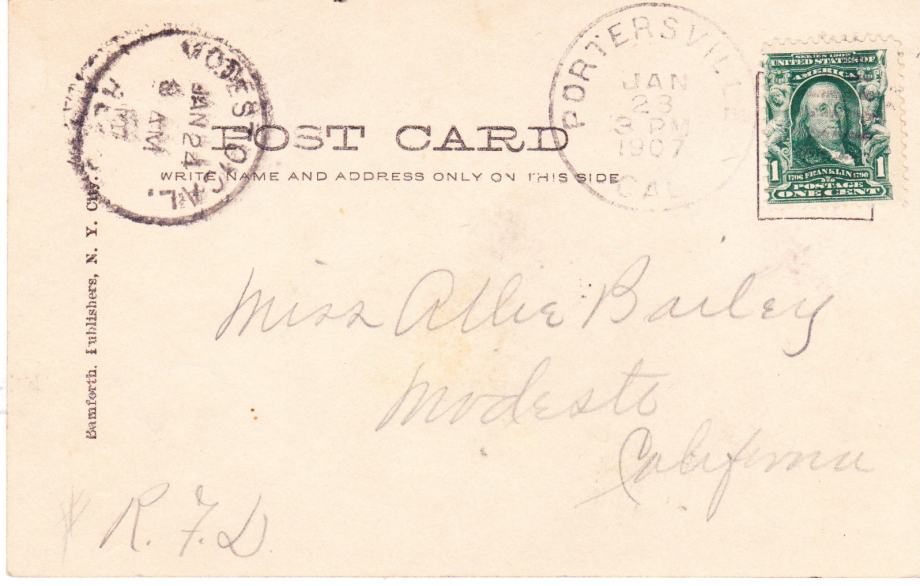 MODESTO, CAL.
JAN 24
8 AM
1907
REC'D
PORTERSVILLE
JAN
23
3 PM
1907
CAL
SERIES 1902
UNITED STATES OF
AMERICA
1 1
1706 FRANKLIN 1790
POSTAGE
ONE CENT
POST CARD
WRITE NAME AND ADDRESS ONLY ON THIS SIDE
Bamforth, Publishers, N. Y. City.
Miss Allie Bailey
Modesto
California
R. F. D.